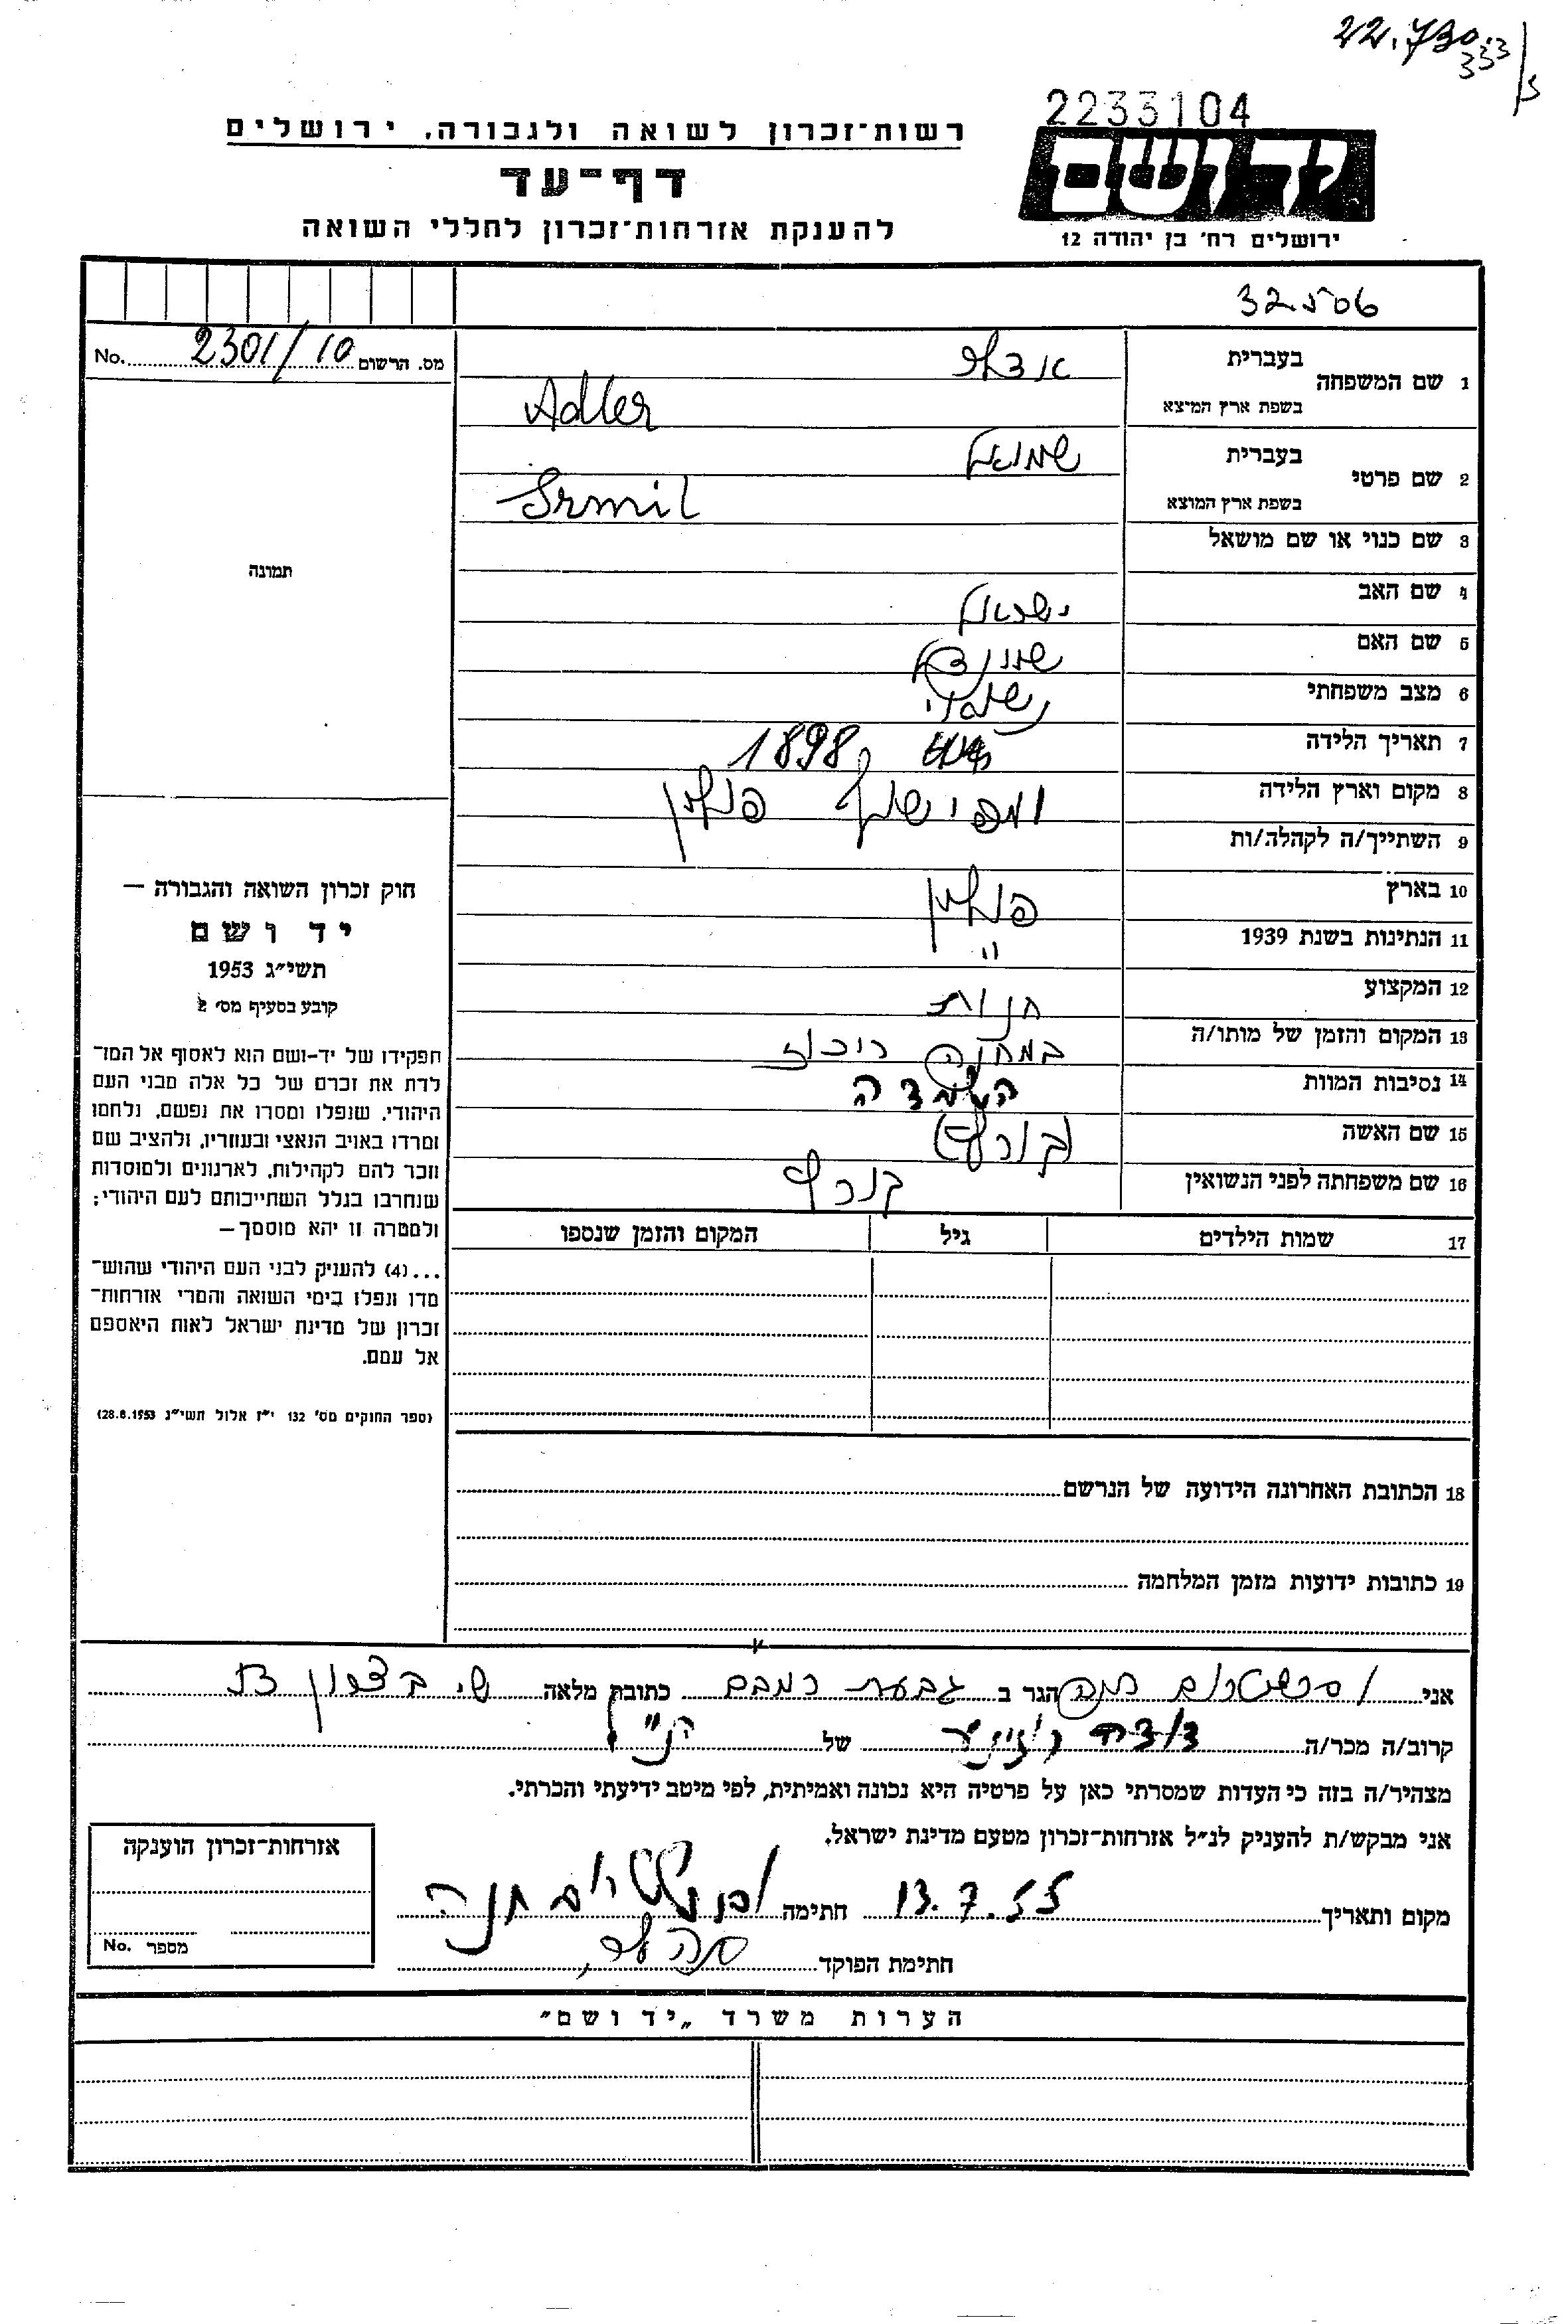 22.730.
333/5
2233104
רשות־זכרון לשואה ולגבורה, ירושלים
יד ושם
דף־עד
להענקת אזרחות־זכרון לחללי השואה
ירושלים רח' בן יהודה 12
32506
No. 2301/10 מס. הרשום
1 שם המשפחה
בעברית אדלר
בשפת ארץ המיצא Adler
2 שם פרטי
בעברית שמואל
בשפת ארץ המוצא Srmil
3 שם כנוי או שם מושאל
4 שם האב ישראל
5 שם האם שיינדל
6 מצב משפחתי
7 תאריך הלידה 1898
8 מקום וארץ הלידה פולין
9 השתייך/ה לקהלה/ות
10 בארץ פולין
11 הנתינות בשנת 1939 "
12 המקצוע חנות
13 המקום והזמן של מותו/ה במחנה ריכוז
14 נסיבות המוות השמדה
15 שם האשה
16 שם משפחתה לפני הנשואין
17 שמות הילדים גיל המקום והזמן שנספו
18 הכתובת האחרונה הידועה של הנרשם
19 כתובות ידועות מזמן המלחמה
תמונה
חוק זכרון השואה והגבורה —
יד ושם
תשי״ג 1953
קובע בסעיף מס' 2
תפקידו של יד-ושם הוא לאסוף אל המו־
לדת את זכרם של כל אלה מבני העם
היהודי, שנפלו ומסרו את נפשם, נלחמו
ומרדו באויב הנאצי ובעוזריו, ולהציב שם
וזכר להם לקהילות, לארגונים ולמוסדות
שנחרבו בגלל השתייכותם לעם היהודי;
ולמטרה זו יהא מוסמך—
...(4) להעניק לבני העם היהודי שהוש־
מדו ונפלו בימי השואה והמרי אזרחות־
זכרון של מדינת ישראל לאות היאספם
אל עמם.
(ספר החוקים מס' 132 י״ז אלול תשי״ג 28.8.1953)
אני חנה הגר ב גבעת רמבם כתובת מלאה
קרוב/ה מכר/ה של הנ״ל
מצהיר/ה בזה כי העדות שמסרתי כאן על פרטיה היא נכונה ואמיתית, לפי מיטב ידיעתי והכרתי.
אני מבקש/ת להעניק לנ״ל אזרחות־זכרון מטעם מדינת ישראל.
מקום ותאריך 13.7.55 חתימה חנה
חתימת הפוקד
אזרחות־זכרון הוענקה
No. מספר
הערות משרד „יד ושם"